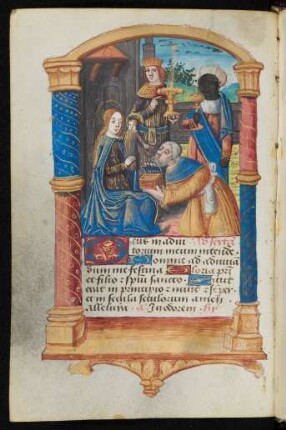 Deus in adiu ad sexta
torium meum intende
Domine ad adiuua
dum me festina Gloria pri
et filio et spui sancto Sicut
erat in principio et nunc et seper
et in secula seculorum amen
alleluia a Inodorem